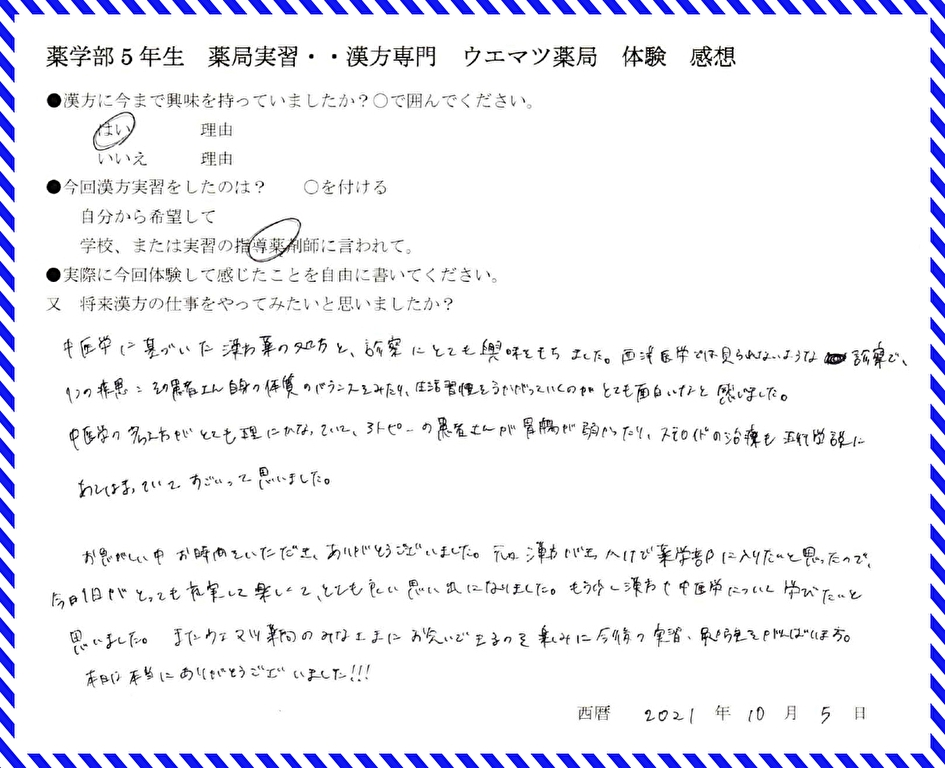 薬学部5年生　薬局実習・・漢方専門　ウエマツ薬局　体験　感想
●漢方に今まで興味を持っていましたか?〇で囲んでください。
はい　　　　理由
いいえ　　　理由
●今回漢方実習をしたのは?　　〇を付ける
自分から希望して
学校、または実習の指導薬剤師に言われて。
●実際に今回体験して感じたことを自由に書いてください。
又　将来漢方の仕事をやってみたいと思いましたか?
中医学に基づいた漢方薬の処方と、診察にとても興味をもちました。西洋医学では見られないような診察で、
1つの疾患 患者さん自身の体質のバランスをみたり、生活習慣をうかがっていくのが とても面白いなと 感じました。
中医学の考え方がとても理にかなっていて、アトピーの患者さんが胃腸が弱かったり、ステロイドの治療も 五行学説に
あてはまっていて すごいって思いました。
お忙しい中 お時間をいただき、ありがとうございました。元々 漢方が 薬学部に入りたいと思ったので、
今日1日が とっても充実して楽しくて、とても良い思い出になりました。もう少し漢方や中医学について 学びたいと
思いました。 またウエマツ薬局のみなさまに お会いできるのを楽しみに 今後の実習、勉強をがんばります。
本日は本当にありがとうございました!!!
西暦　2021　年　10　月　5　日